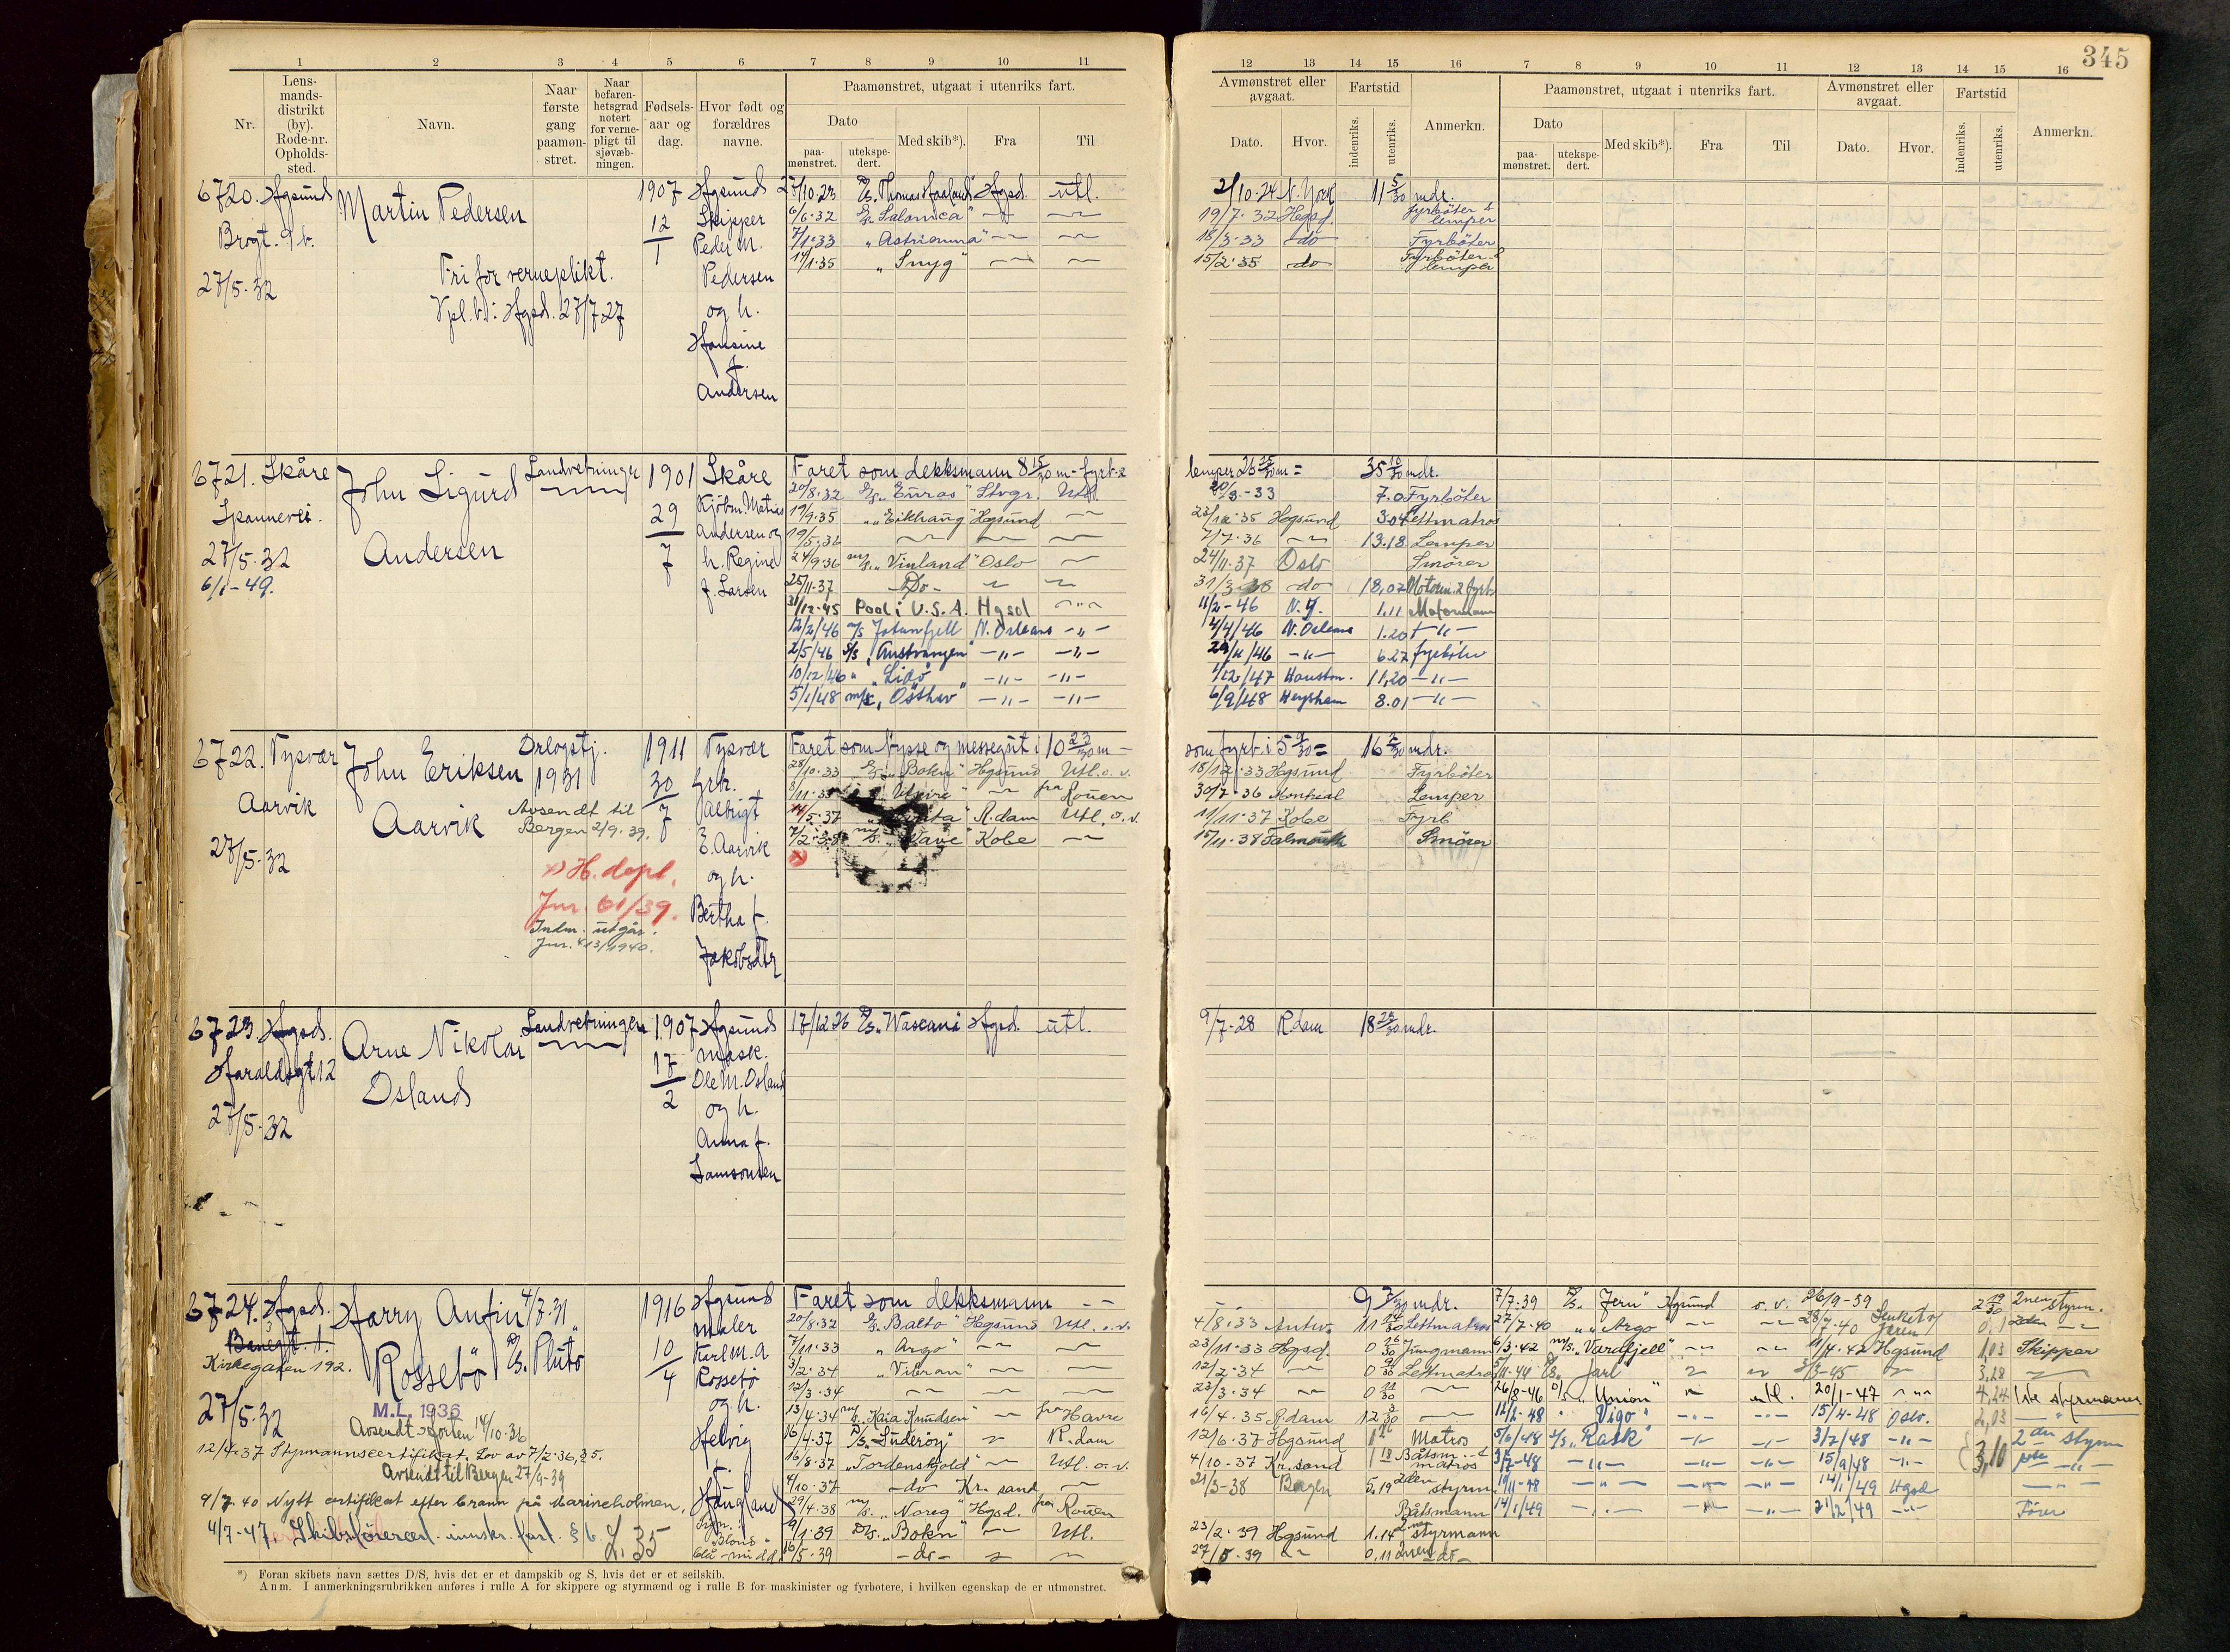 345
1 2 3 4 5 6 7 8 9 10 11
12 13 14 15 16 7 8 9 10 11 12 13 14 15 16
Nr.
Lens-
mands-
distrikt
(by).
Rode-nr.
Opholds-
sted.
Navn.
Naar
første
gang
paamøn-
stret.
Naar
befaren-
hetsgrad
notert
for verne-
pligt til
sjøvæb-
ningen.
Fødsels-
aar og
dag.
Hvor født og
forældres
navne.
Paamønstret, utgaat i utenriks fart.
Dato
paa-
mønstret.
utekspe-
dert.
Med skib*).
Fra
Til
Avmønstret eller
avgaat.
Dato.
Hvor.
Fartstid
indenriks.
utenriks.
Anmerkn.
Paamønstret, utgaat i utenriks fart.
Dato
paa-
mønstret.
utekspe-
dert.
Med skib*).
Fra
Til
Avmønstret eller
avgaat.
Dato.
Hvor.
Fartstid
indenriks.
utenriks.
Anmerkn.
6720. Hgsund
Brogt. 9 b.
27/5-32
Martin Pedersen
Fri for verneplikt.
Vpl.b.: Hgsd. 27/7 27
1907
12
1
Hgsund
Skipper
Peder M.
Pedersen
og h.
Hansine
f.
Andersen
27/10-23 D/S. Thomas Haaland" Hgsd. utl. 2/10-24 N. York 11 5/30 mdr.
6/6-32 D/S. "Salonica" 19/7-32 Hgsd. Fyrböter & lemper
7/1-33 "Astrianna" 18/3-33 do Fyrböter
14/1-35 "Snyg" 15/2-35 do Fyrböter & lemper
6721. Skåre
Spannevei.
27/5-32
6/1-49.
John Sigurd
Andersen
Landvetninger
1901
29
7
Skåre
Kjøbm. Matias
Andersen og
h. Regine
f. Larsen
Faret som dekksmann 8 15/30 m - fyrb. & lemper 26 25/30 m = 35 10/30 mdr.
20/8-32 D/S. "Euros" Stvgr. Utl. 20/3-33 7.0 Fyrböter
19/9-35 "Eikhaug" Hgsund 23/12-35 Hgsund 3.04 Lettmatros
19/5-36 7/7-36 13.18 Lemper
24/9-36 M/S. "Vinland" Oslo 24/11-37 Oslo Smörer
25/11-37 - Do - 31/3-38 do 18.07 Motorm. & fyrb.
31/12-45 Pool i U.S.A. Hgsd 11/2-46 N.Y. 1.11 Motormann
12/2/46 M/S Jotunfjell N. Orleans -"- 4/4/46 N. Orleans 1.20 -"-
2/5/46 S/S "Austvangen" -"- -"- 29/11/46 -"- 6.27 fyrböter
10/12/46 " "Lidö" -"- -"- 1/12/47 Houston. 11,20 -"-
5/1/48 "Östhav" -"- -"- 6/9/48 Heysham 8.01 -"-
6722. Tysvær
Aarvik
27/5-32
John Eriksen
Aarvik
Orlogstj.
1931
Avsendt til
Bergen 2/9-39.
x) H. depl.
Jnr. 61/39.
Indm. utgår.
Jnr. 413/1940.
1911
30
7
Tysvær
Grbr.
Albrigt
E. Aarvik
og h.
Bertha f.
Jakobsdtr.
Faret som bysse og messegut i 10 23/30 m - som fyrb. i 5 9/30 = 16 2/30 mdr.
28/10-33 D/S. "Bokn" Hgsund Utl. o.v. 18/12-33 Hgsund Fyrböter
8/11-35 fra Rouen 30/7-36 Montreal Lemper
14/5-37 R.dam Utl. o.v. 11/11-37 Kobe Fyrb
7/2-38 M/S. Kobe 15/11-38 Falmouth Smörer
6723. Hgsd.
Haraldsgt 12
27/5-32
Arne Nikolai
Osland
Landvetninger
1907
17
2
Hgsund
Mask.
Ole M. Osland
og h.
Anna f.
Samsonsen
17/12 26 D/S. "Wascana" Hgsd. utl. 9/7-28 R.dam 18 22/30 mdr.
6724. Hgsd.
Banegt. 1.
Kirkegaten 192.
27/5-32
Harry Anfin
Rossebö
4/7-31
D/S. "Pluto"
M.L. 1936
Avsendt Horten 14/10-36
12/4-37 Styrmannscertifikat. Lov av 7/2-36, § 5.
Avsendt til Bergen 27/9-39
9/7-40 Nytt certifikat efter brann på Marineholmen.
4/7-47. Skibsförercert. innskr. fart. § 6. L. 35
1916
10
4
Hgsund
Maler
Karl M. A
Rossebö
og h.
Helvig
f.
Haugland
Faret som dekksmann -- 9 7/30 mdr.
20/8-32 D/S. "Balto" Hgsund Utl. o.v. 4/8-33 Antw. 11 Lettmatros
7/11-33 "Argo" 23/11-33 Hgsd. 0 16/30 Jungmann
3/2-34 "Vibran" 12/2-34 0 9/30 Lettmatros
12/3-34 23/3-34 0 11/30
13/4-34 M/S. "Kaia Knudsen" fra Havre 16/4-35 R.dam 12 3/30
16/4-37 D/S. "Suderöy" R.dam 12/6-37 Hgsund Matros
16/8-37 "Tordenskjold" Utl. o.v. 4/10-37 Kr.sand 1 18 Båtsm. & matros
4/10-37 -do- Kr. sand 21/3-38 Bergen 5,19 2den styrm.
29/4-38 M/S. "Noreg" Hgsd. fra Rouen Båtsmann
9/1-39 D/S. "Bokn" Utl. 23/2-39 Hgsund 1.14 2nen styrmann
16/5-39 -do- 27/5-39 0,11 2nen -do-
7/7-39 D/S. "Jern" Hgsund o.v. 26/9-39 2 19/30 2nen styrm.
27/7-40 "Argo" 28/7-40 Senket v/ Jæren 0,1 2den
6/3-42 M/S. "Vardfjell" 11/4-42 Hgsund 1,03 Skipper
5/11-44 D/S. Jarl 3/3-45 3,28
26/8-46 D/S. "Union" utl. 20/1-47 4,24 1ste styrmann
12/2-48 " "Vigo" -"- -"- 15/4-48 Oslo. 2,03 -"-
5/6/48 S/S "Rask" -"- -"- 3/7/48 -"- 2den styrm
3/7-48 -"- -"- -"- 15/9/48 -"- 3,10 1ste -"-
19/11-48 -"- -"- -"- 14/1/49 Hgsd -"-
14/1/49 -"- -"- -"- 21/2/49 -"- Förer
*) Foran skibets navn sættes D/S, hvis det er et dampskib og S, hvis det er et seilskib.
Anm. I anmerkningsrubrikken anføres i rulle A for skippere og styrmænd og i rulle B for maskinister og fyrbøtere, i hvilken egenskap de er utmønstret.